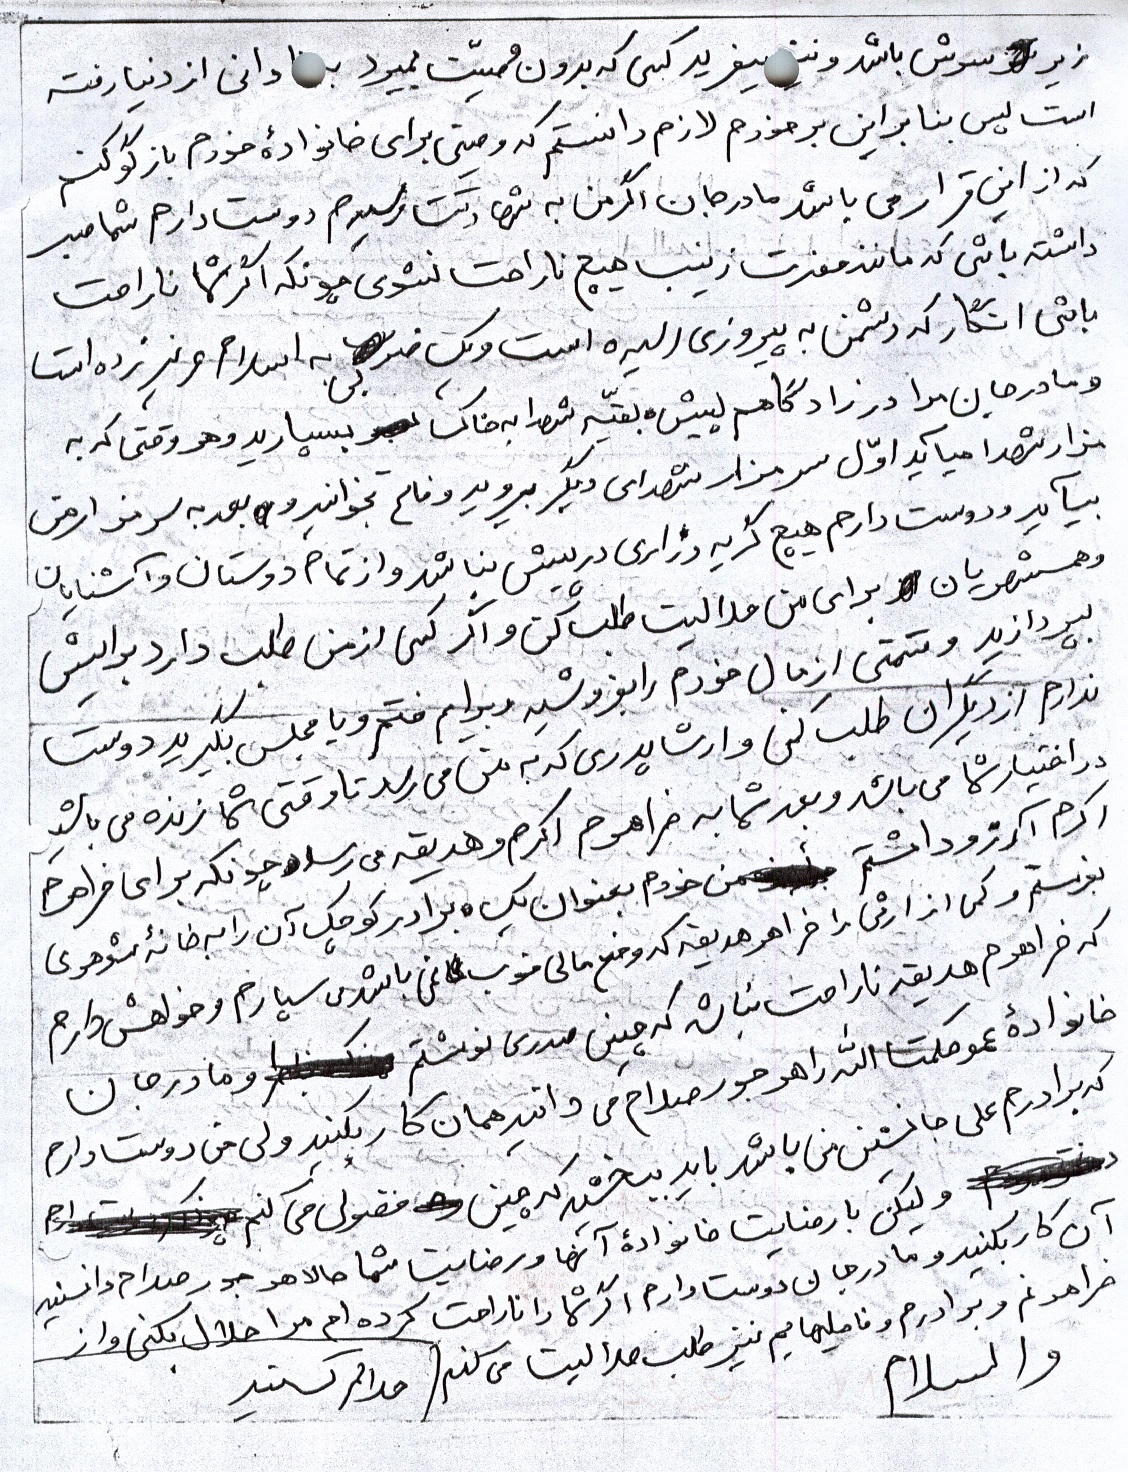 زیر سرش باشد و نیز میفرمید کسی که بدون وصیّت بمیرد به نادانی از دنیا رفته
است پس بنابراین بر خودم لازم دانستم که وصیتی برای خانوادهٔ خودم بازگو کنم
که از این قرار می باشد مادر جان اگر من به شهادت رسیدم دوست دارم شما صبر
داشته باشی که مانند حضرت زینب هیچ ناراحت نشوی چونکه اگر شما ناراحت
باشی انگار که دشمن به پیروزی رسیده است و یک ضربه ای به اسلام عزیز زده است
و مادر جان مرا در زادگاهم پیش بقیّه شهدا به خاک بسپارید و هر وقتی که به
مزار شهدا میآید اوّل سر مزار شهدای دیگر بروید و فاتح بخوانید و بعد به سر مزار من
بیآید و دوست دارم هیچ گریه و زاری در پیش نباشد و از تمام دوستان و آشنایان
و همشهریان برای من حلالیت طلب کن و اگر کسی از من طلب دارد برایش
بپردازید و قسمتی از مال خودم را بفروشید و برایم ختم و یا مجلس بگیرید دوست
ندارم از دیگران طلب کنی و ارث پدری که به من می رسد تا وقتی شما زنده می باشی
در اختیار شما می باشد و بعد شما به خواهرم اکرم و هدیقه می رسد چونکه برای خواهرم
اکرم آرزو داشتم من خودم بعنوان یک برادر کوچک آن را به خانهٔ شوهری
بفرستم و کمی از ارثی را خواهر هدیقه که وضع مالی خوب نمی باشد می سپارم و خواهش دارم
که خواهرم هدیقه ناراحت نباشد که چنین صدری نوشتم و مادر جان
خانوادهٔ عمو حکمت الله را هر جور صلاح می دانید همان کار بکنید ولی من دوست دارم
که برادرم علی جانشین من باشد باید ببخشید که چنین فضولی می کنم
ولیکن با رضایت خانوادهٔ آنها و رضایت شما حالا هر جور صلاح دانستید
آن کار بکنید و مادر جان دوست دارم اگر شما را ناراحت کرده ام مرا حلال بکنی و از
خواهرانم و برادرم و فامیلهایم نیز طلب حلالیت می کنم حلالم کنید
والسلام